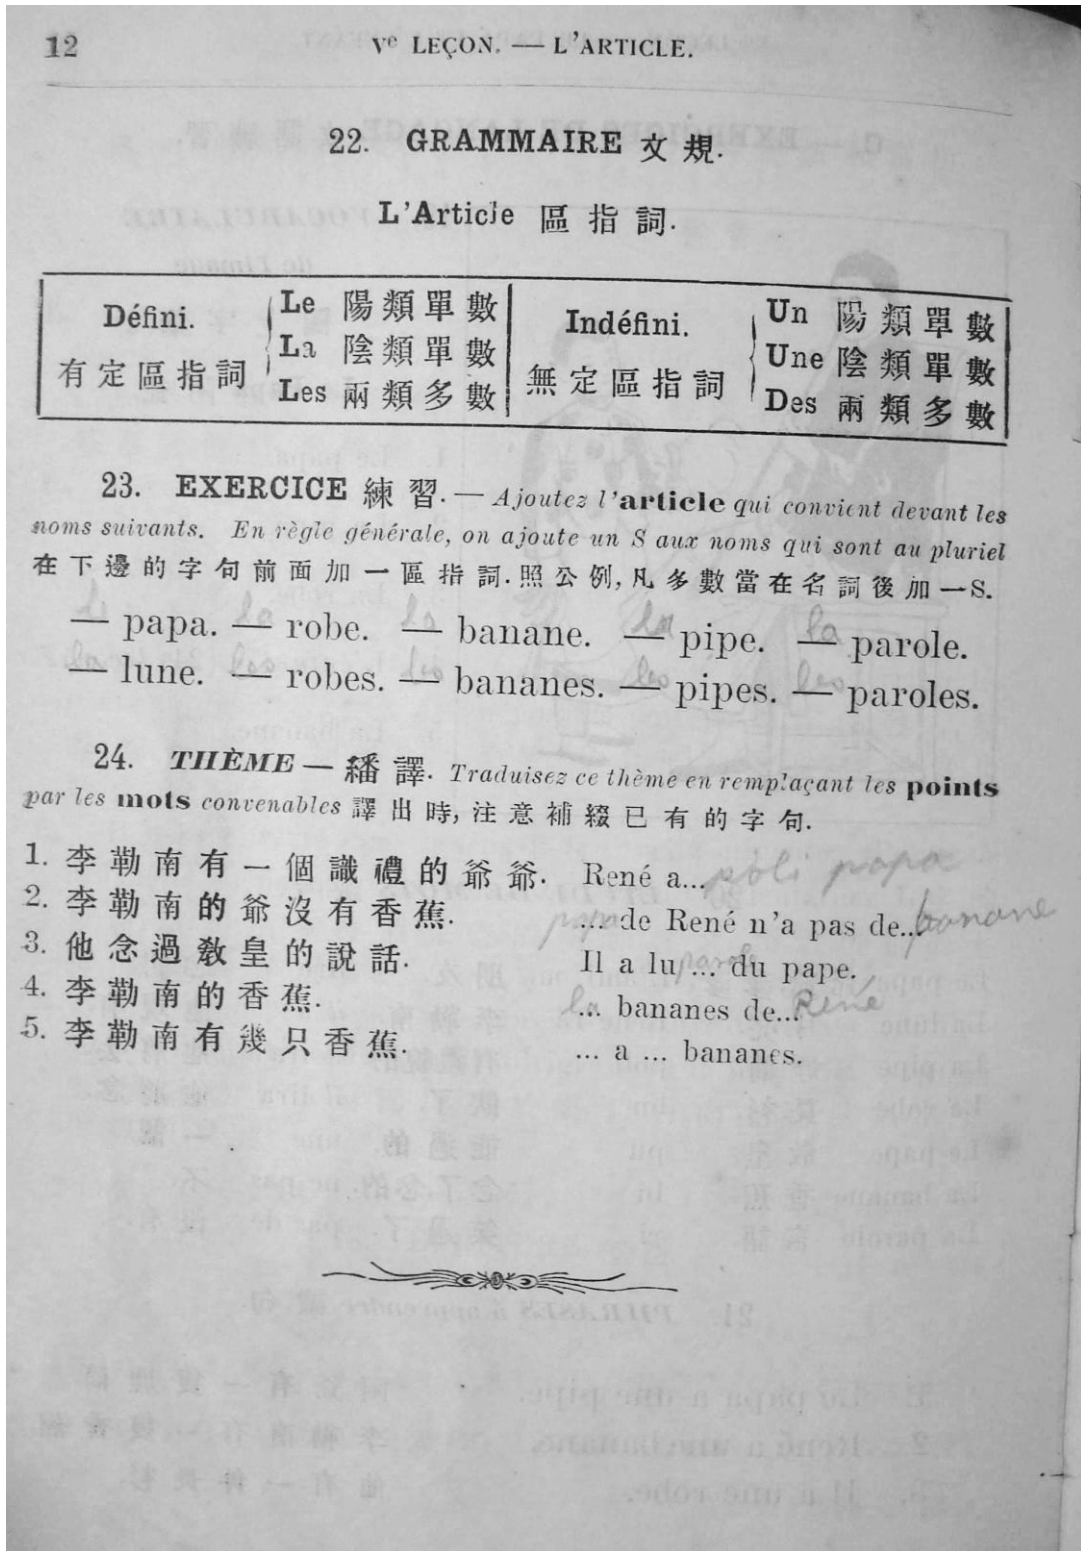 12
Vᵉ LEÇON. — L'ARTICLE.
22. GRAMMAIRE 文規.
L'Article 區指詞.
Défini. Le 陽類單數 Indéfini. Un 陽類單數
La 陰類單數 Une 陰類單數
有定區指詞 Les 兩類多數 無定區指詞 Des 兩類多數
23. EXERCICE 練習. — Ajoutez l'article qui convient devant les
noms suivants. En règle générale, on ajoute un S aux noms qui sont au pluriel
在下邊的字句前面加一區指詞.照公例,凡多數當在名詞後加一S.
— papa. — robe. — banane. — pipe. la parole.
— lune. — robes. — bananes. les — pipes. les — paroles.
24. THÈME — 繙譯. Traduisez ce thème en remplaçant les points
par les mots convenables 譯出時,注意補綴已有的字句.
1. 李勒南有一個識禮的爺爺. René a... poli papa
2. 李勒南的爺沒有香蕉. papa ... de René n'a pas de... banane
3. 他念過教皇的說話. Il a lu parole ... du pape.
4. 李勒南的香蕉. la ... bananes de... René
5. 李勒南有幾只香蕉. ... a ... bananes.